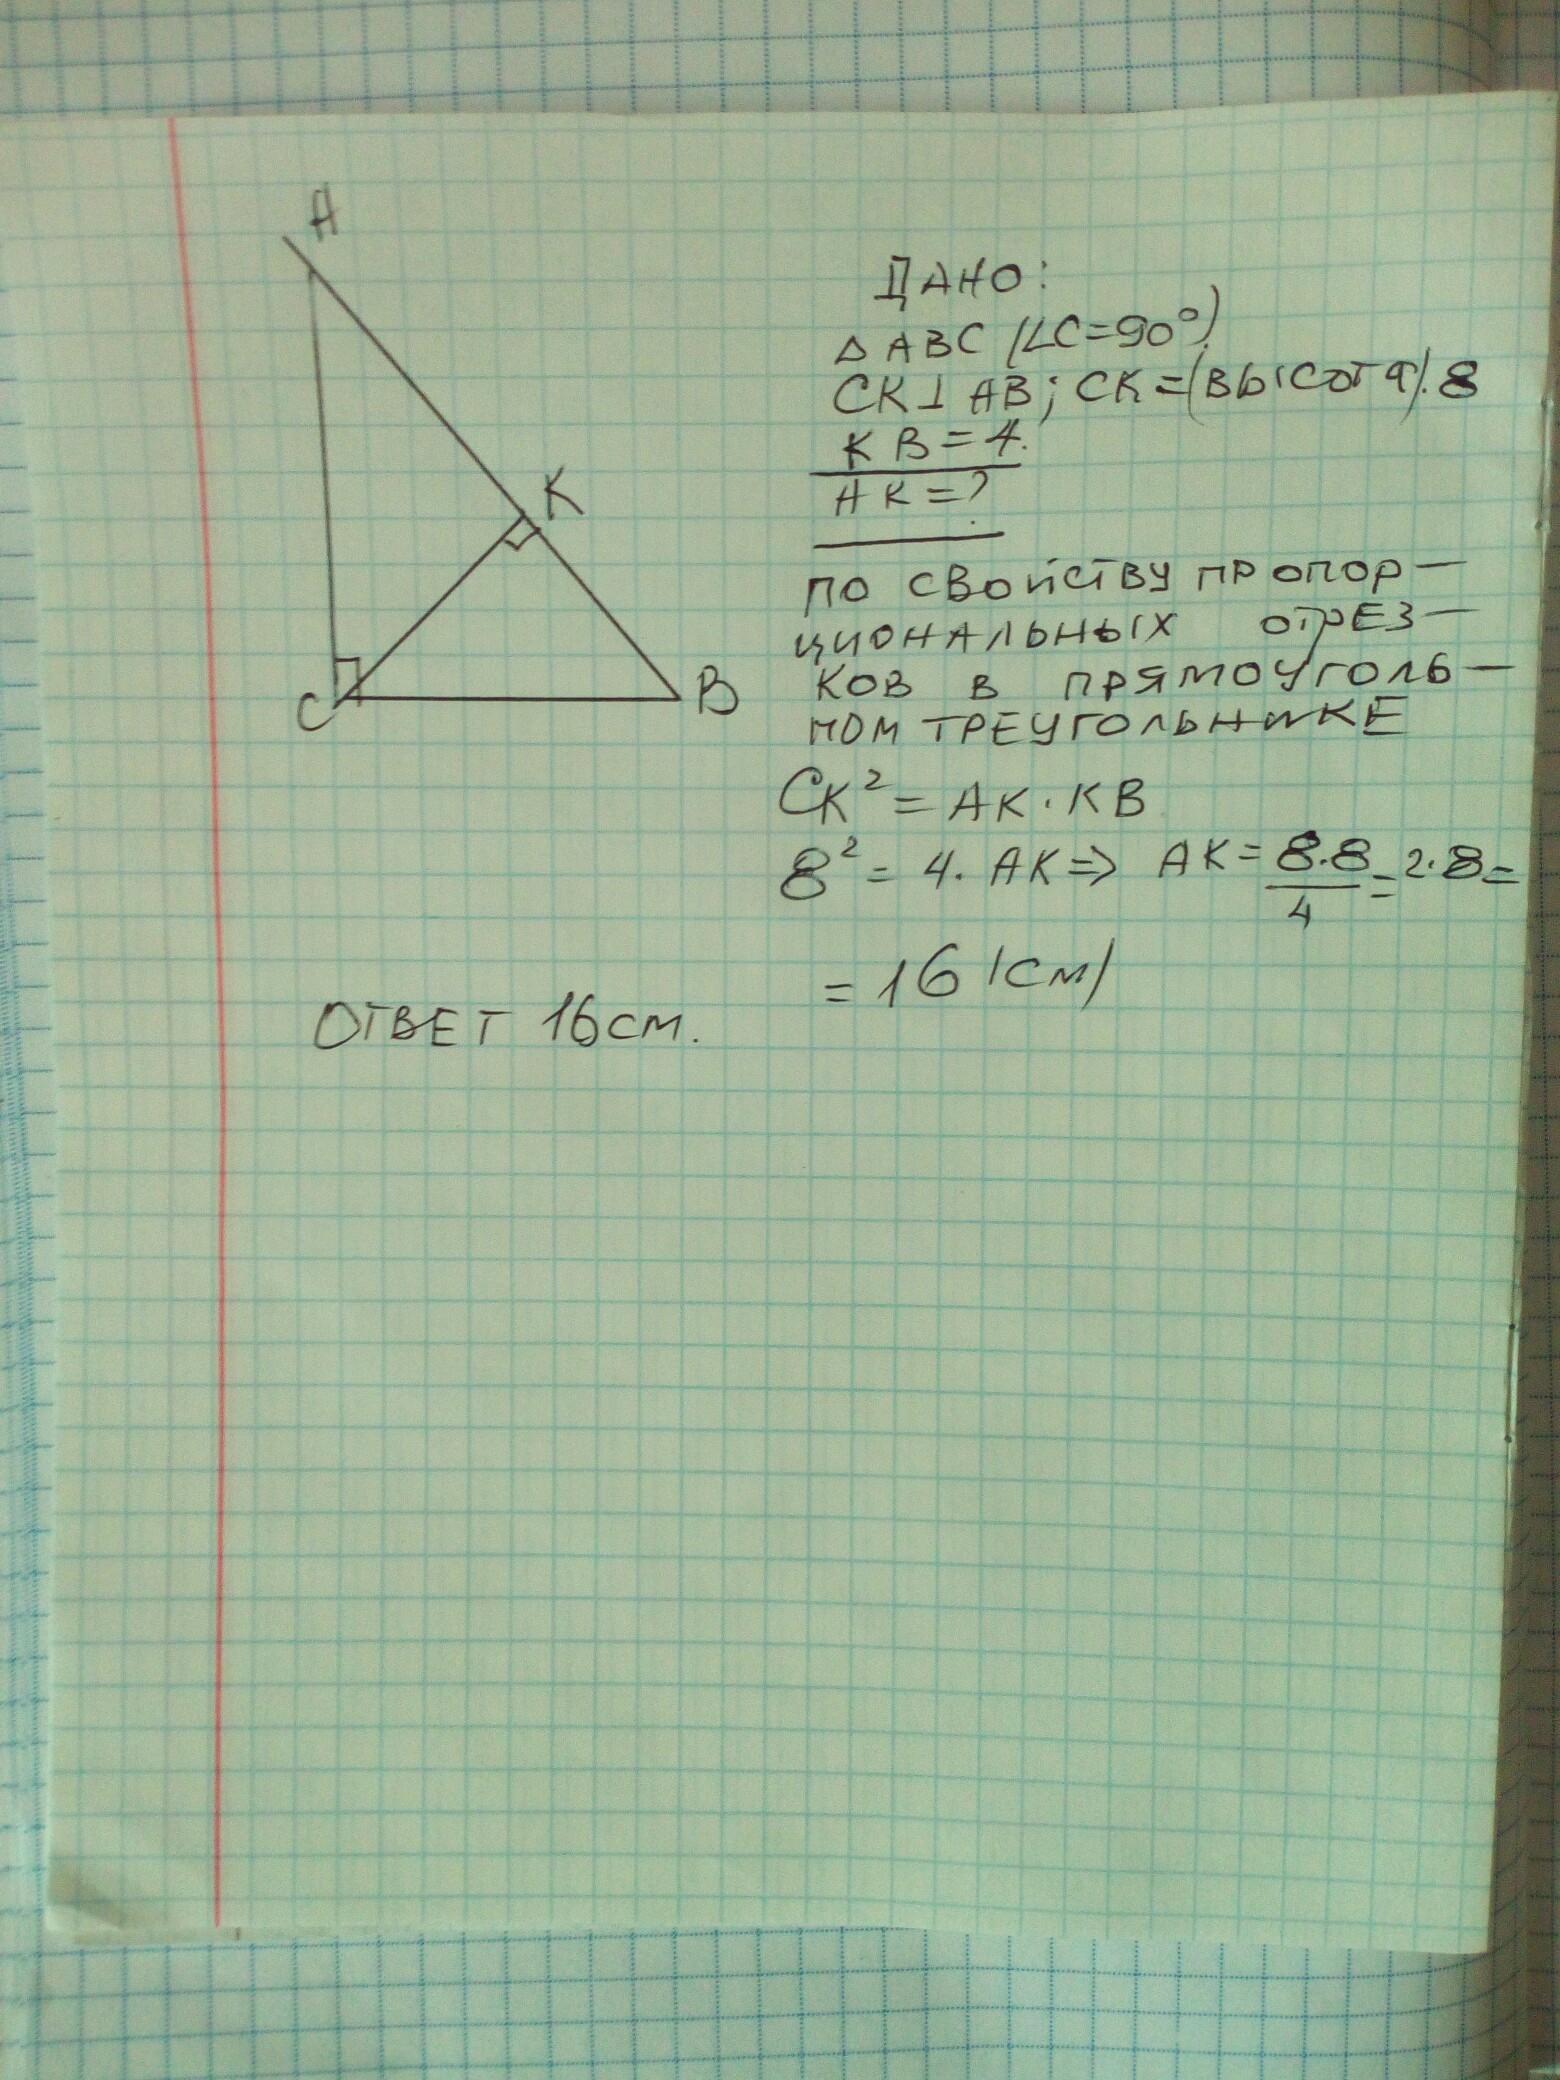 A
K
C
B
ДАНО:
△ ABC (∠C=90°)
CK⊥AB; CK=(ВЫСОТА). 8
KB=4.
AK=?
ПО СВОЙСТВУ ПРОПОР-
ЦИОНАЛЬНЫХ ОТРЕЗ-
КОВ В ПРЯМОУГОЛЬ-
НОМ ТРЕУГОЛЬНИКЕ
CK² = AK · KB
8² = 4. AK ⇒ AK = 8.8/4 = 2.8 =
= 16 (см)
ОТВЕТ 16 см.